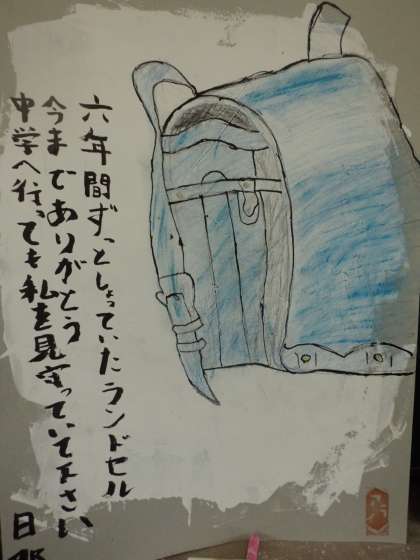 六年間ずっとしょっていたランドセル
今までありがとう
中学へ行っても私を見守っていて下さい